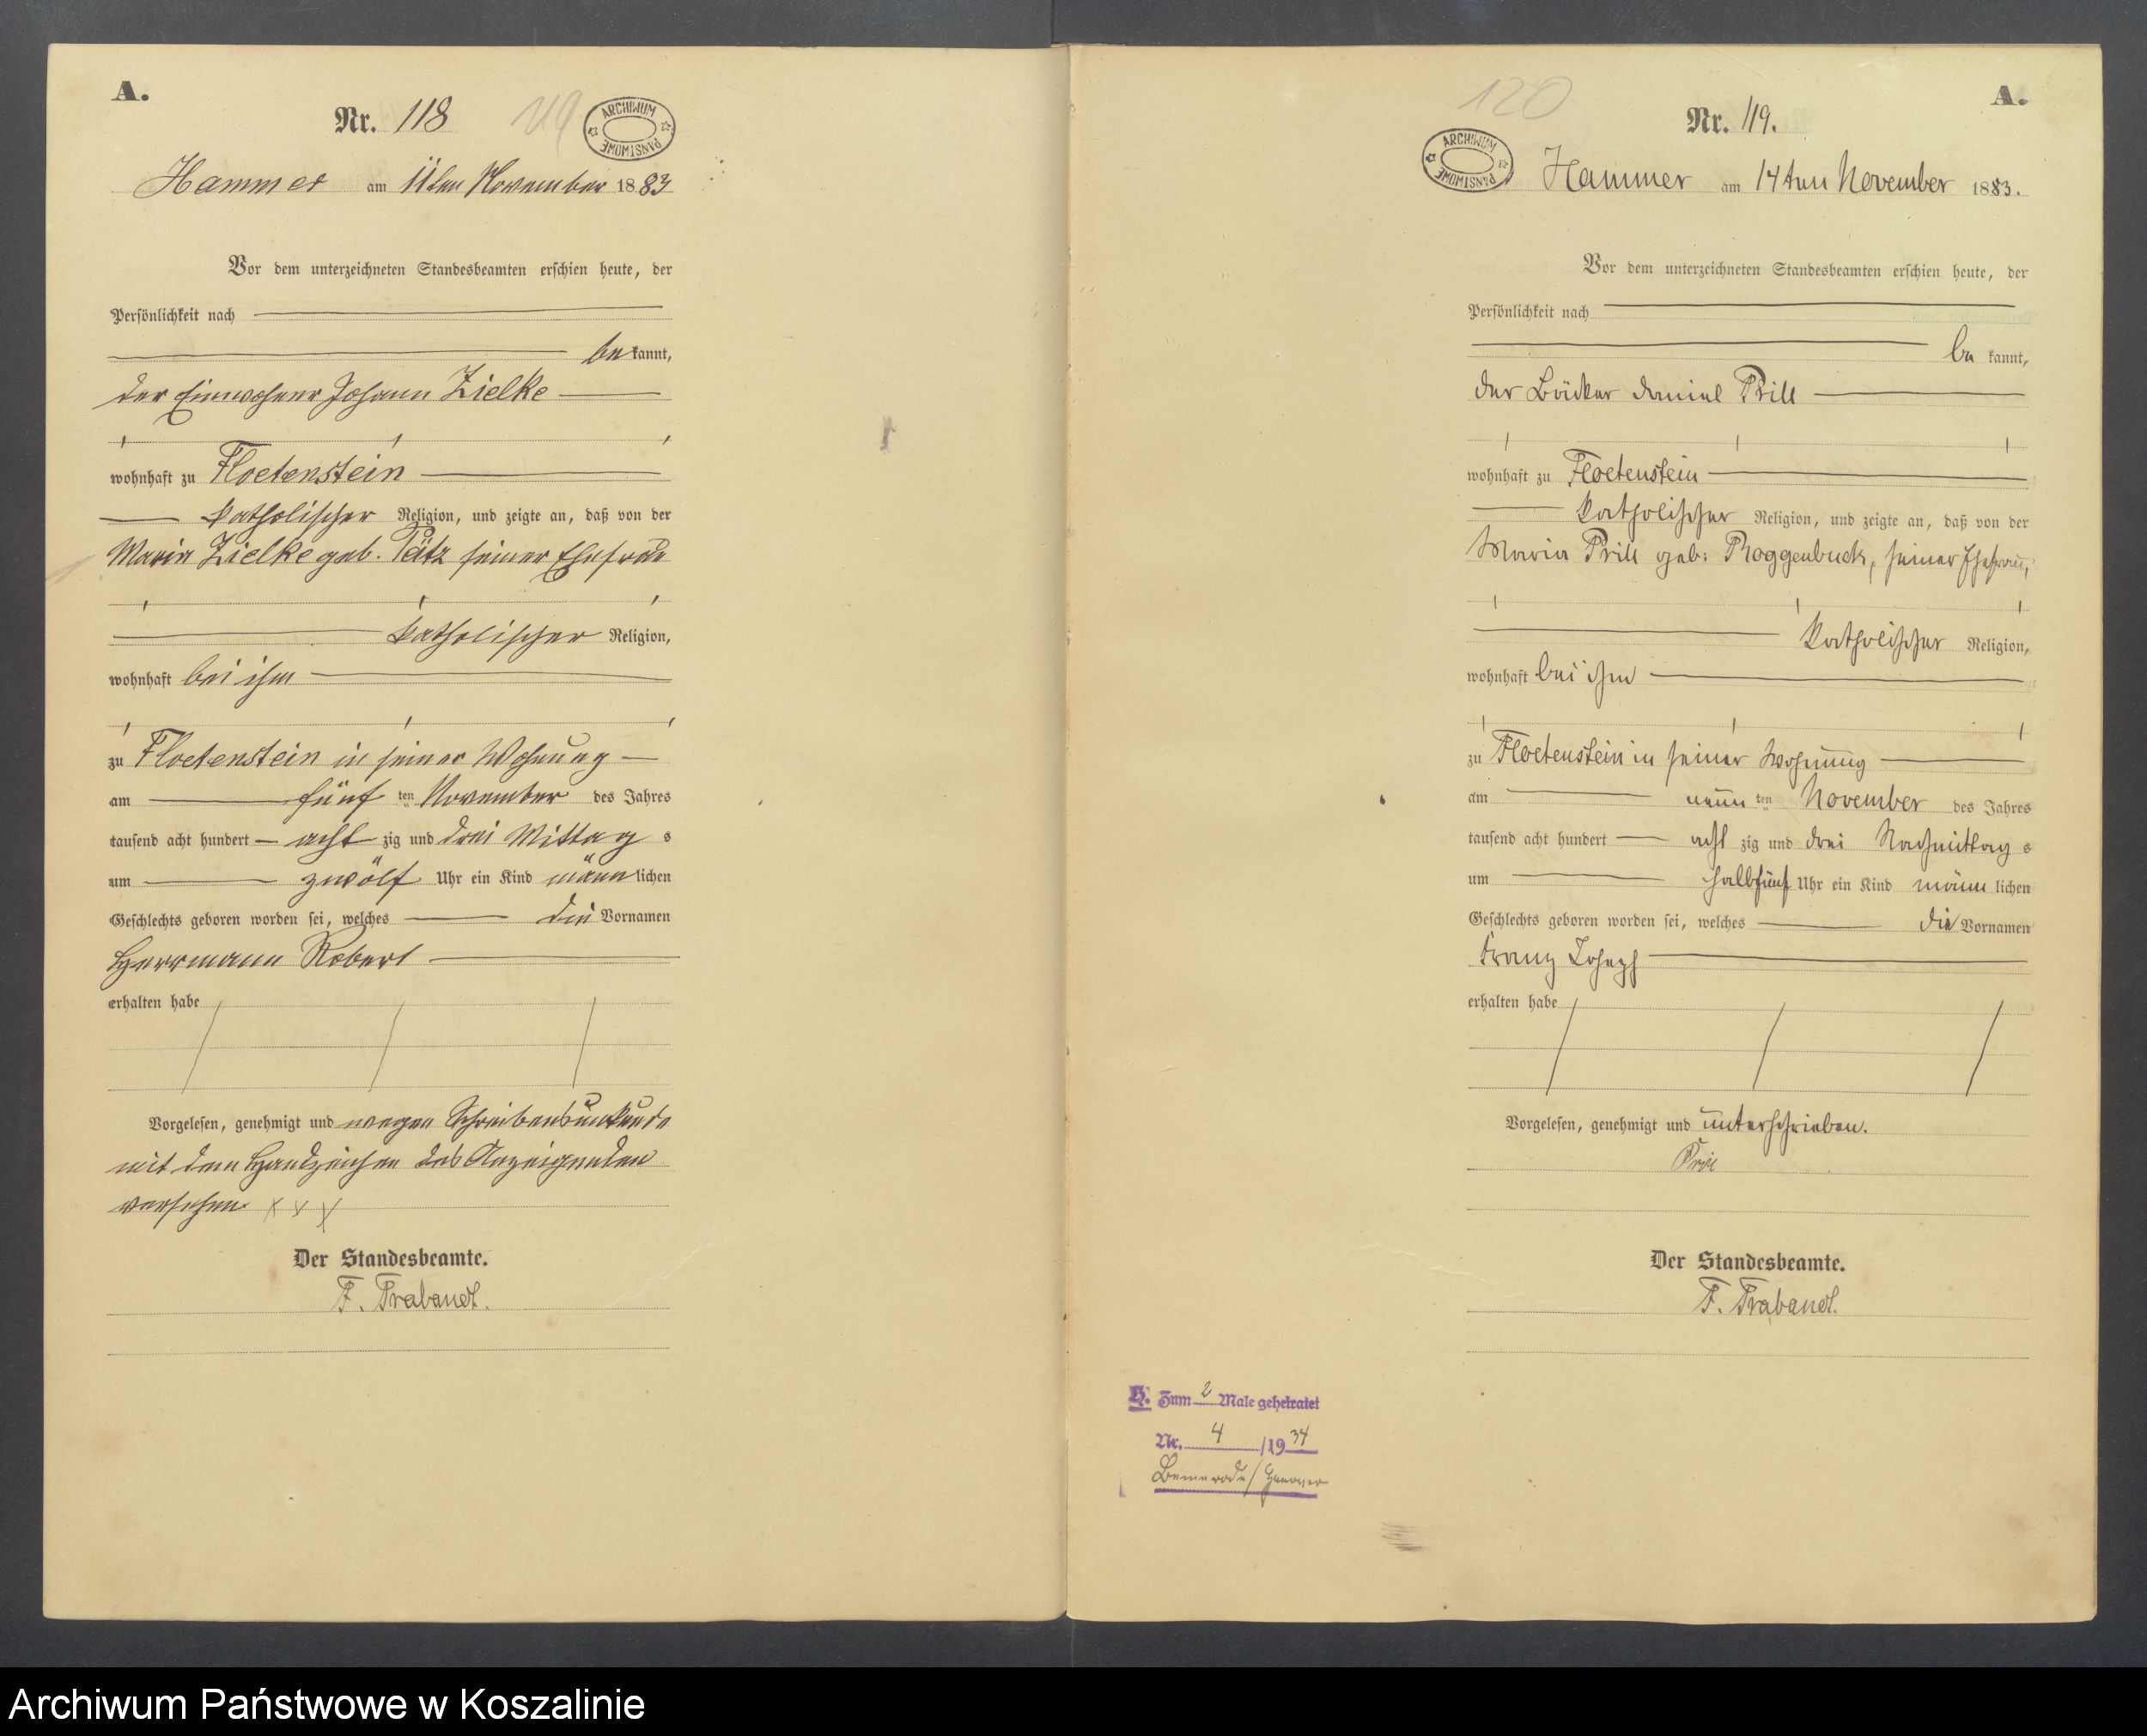 A.
Nr. 118
119
ARCHIWUM PAŃSTWOWE
Hammer am 11ten November 1883
Vor dem unterzeichneten Standesbeamten erschien heute, der
Persönlichkeit nach
be kannt,
der Einwohner Johann Zielke
wohnhaft zu Floetenstein
katholischer Religion, und zeigte an, daß von der
Maria Zielke geb. Pätz seiner Ehefrau
katholischer Religion,
wohnhaft bei ihm
zu Floetenstein in seiner Wohnung
am fünf ten November des Jahres
tausend acht hundert acht zig und drei Mittag s
um zwölf Uhr ein Kind männ lichen
Geschlechts geboren worden sei, welches die Vornamen
Herrmann Robert
erhalten habe
Vorgelesen, genehmigt und wegen Schreibensunkunde
mit dem Handzeichen des Anzeigenden
versehen. x x x
Der Standesbeamte.
F. Trabandt.
120
A.
Nr. 119.
ARCHIWUM PAŃSTWOWE
Hammer am 14ten November 1883.
Vor dem unterzeichneten Standesbeamten erschien heute, der
Persönlichkeit nach
be kannt,
der Bäcker Daniel Prill
wohnhaft zu Floetenstein
katholischer Religion, und zeigte an, daß von der
Maria Prill geb: Roggenbuck, seiner Ehefrau,
katholischer Religion,
wohnhaft bei ihm
zu Floetenstein in seiner Wohnung
am neun ten November des Jahres
tausend acht hundert acht zig und drei Nachmittag s
um halbfünf Uhr ein Kind männ lichen
Geschlechts geboren worden sei, welches die Vornamen
Franz Joseph
erhalten habe
Vorgelesen, genehmigt und unterschrieben.
Prill
Der Standesbeamte.
F. Trabandt.
H. Zum 2 Male geheiratet
Nr. 4 /1934
Bemerode/Hanover
Archiwum Państwowe w Koszalinie